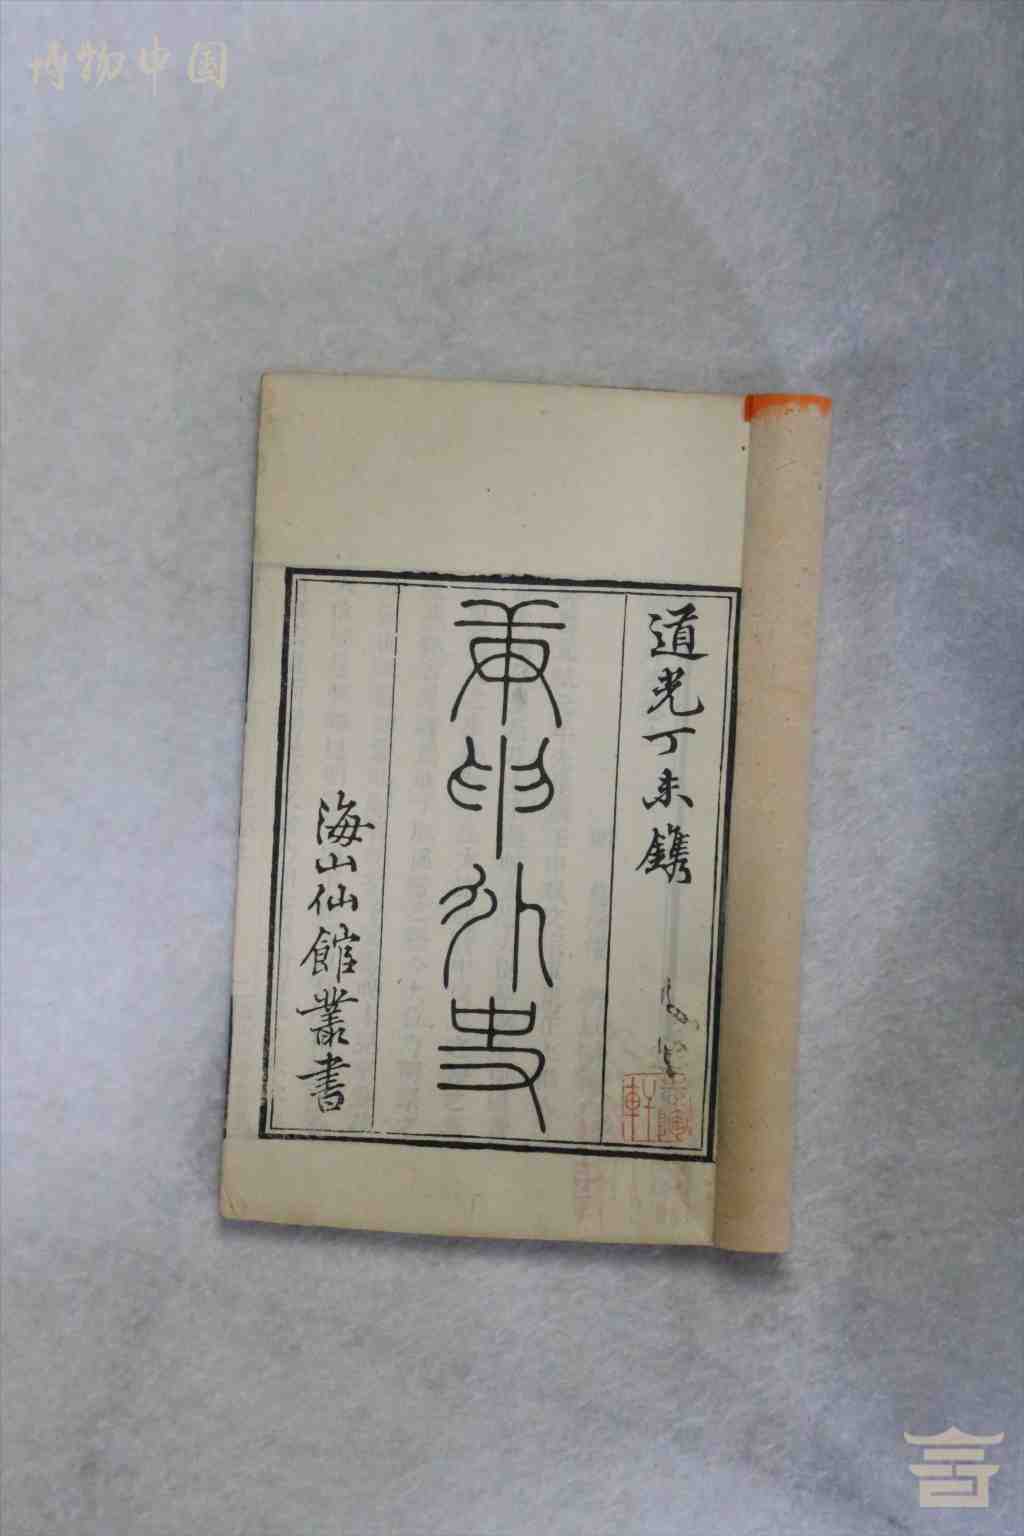 博物中国
道光丁未鐫
庚申外史
海山仙館叢書